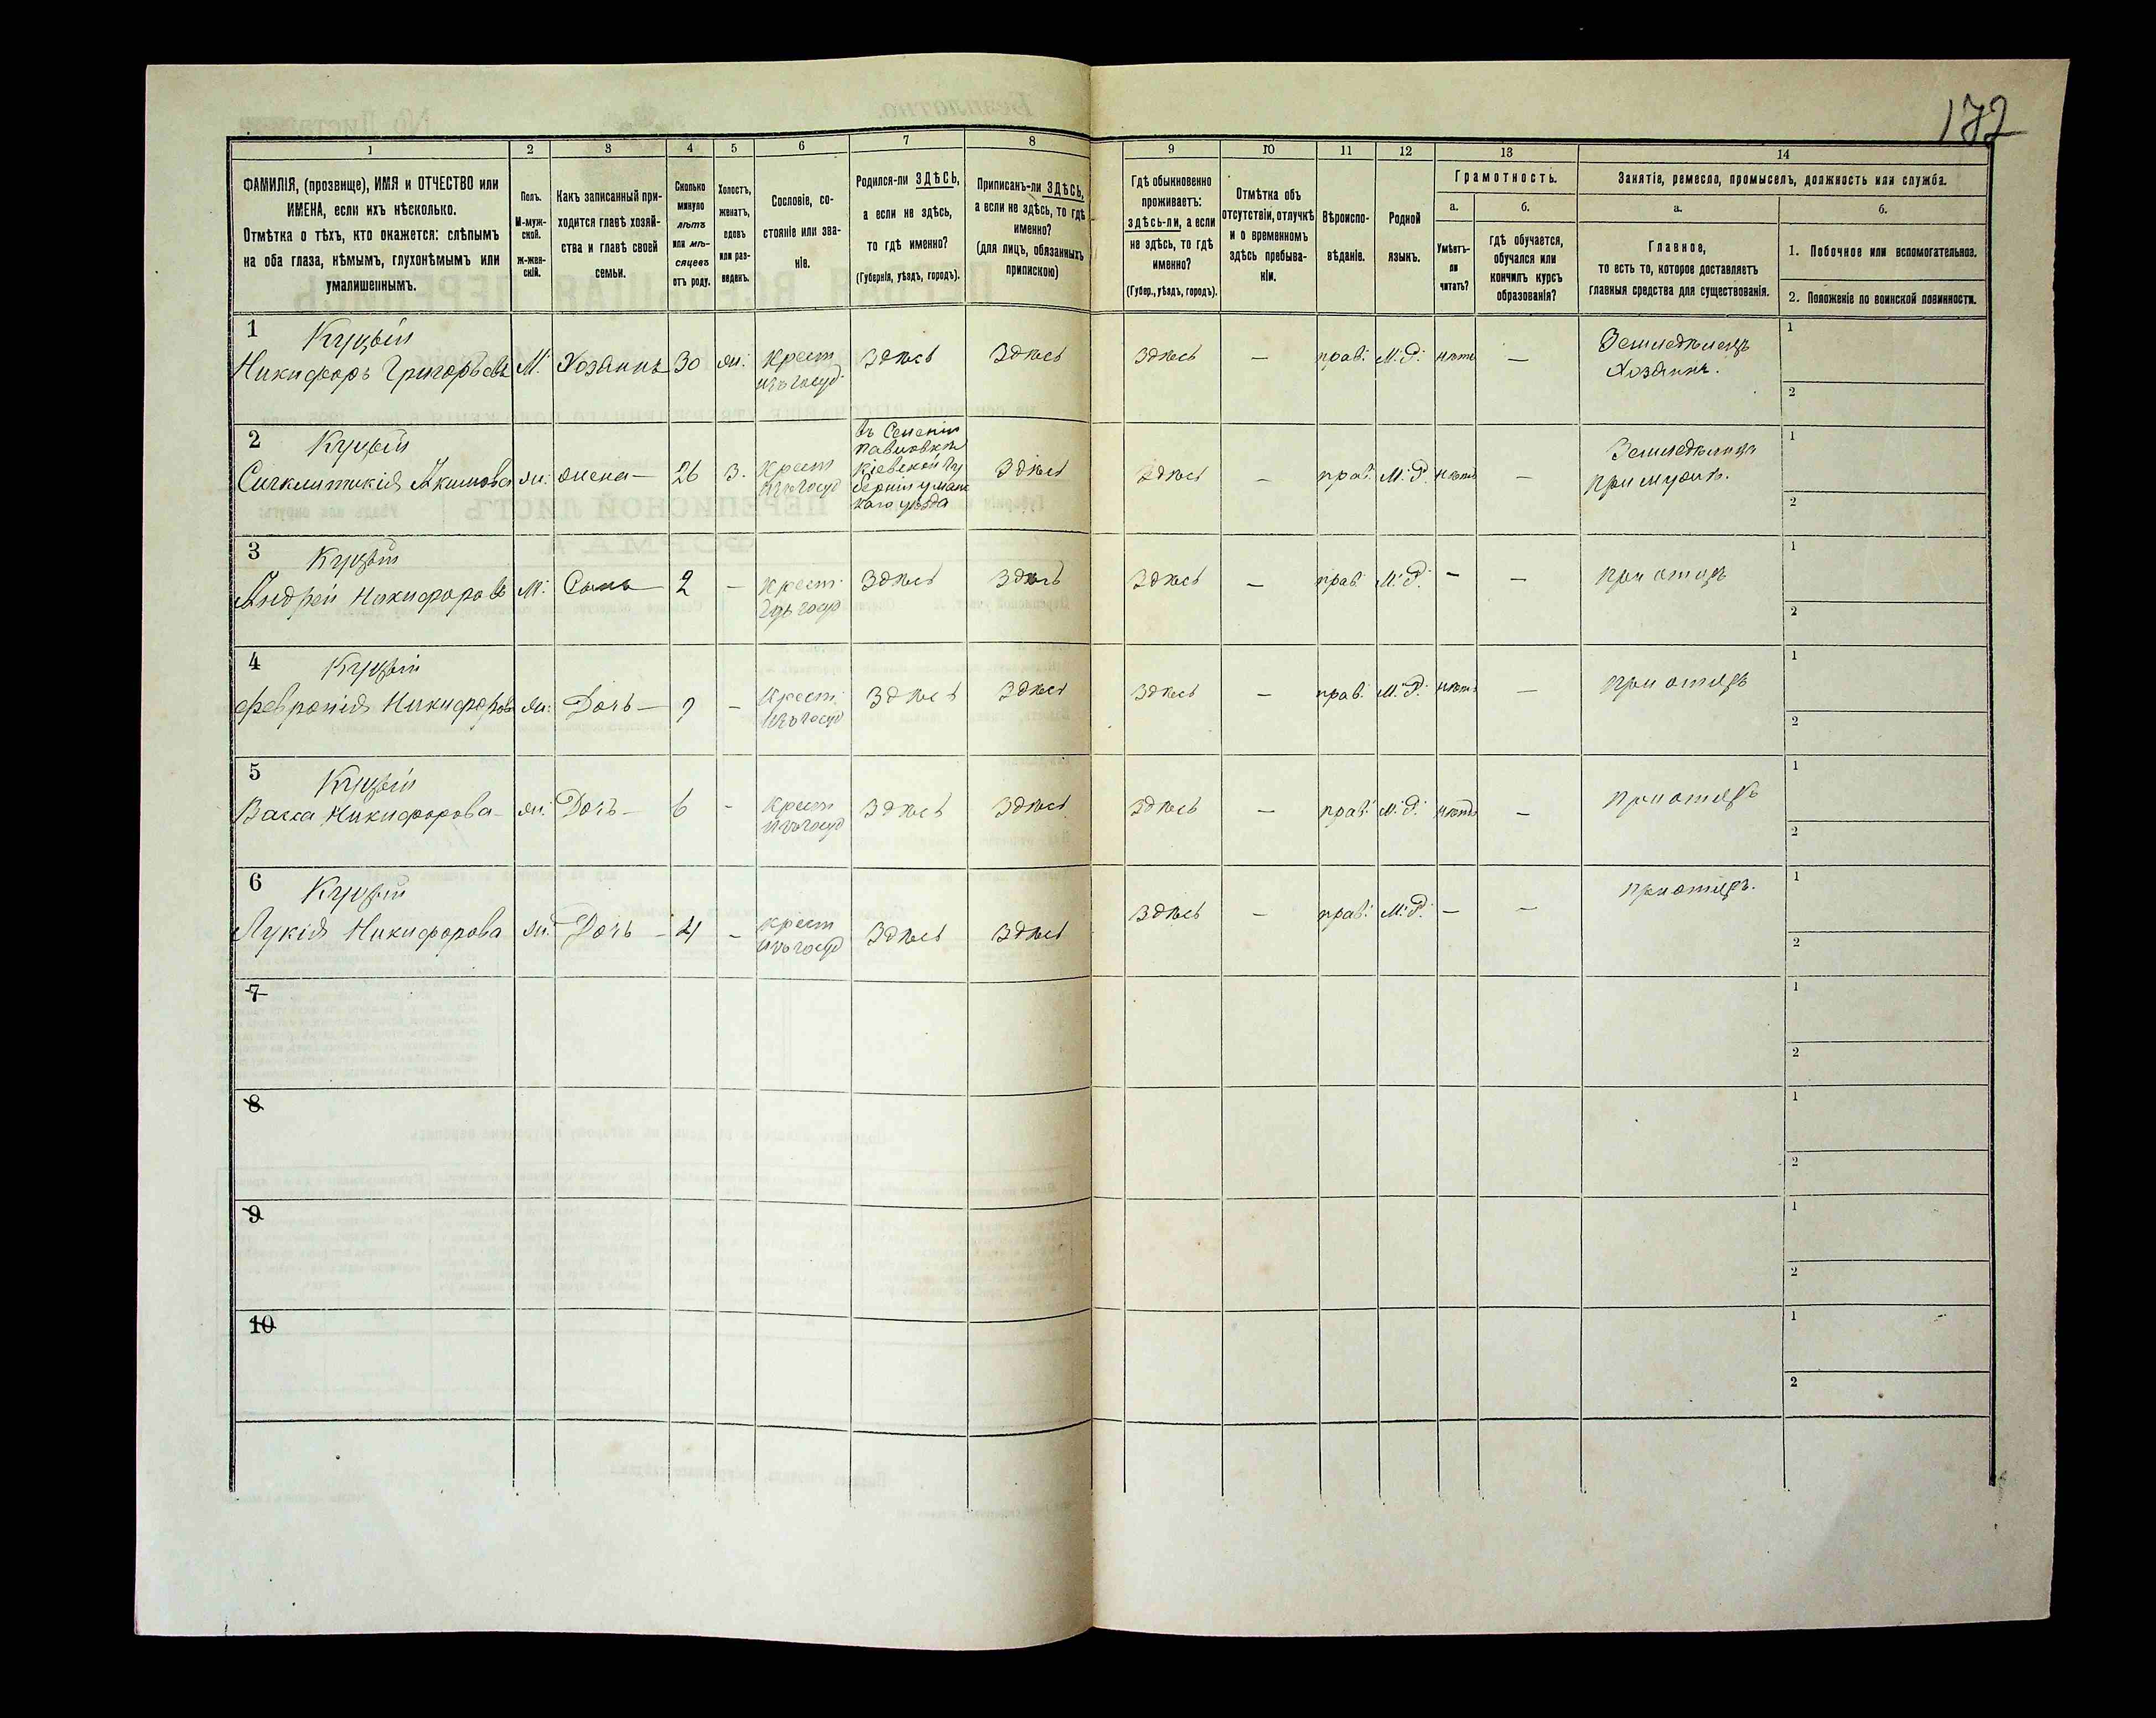 172
1
2
3
4
5
6
7
8
9
10
11
12
13
14
ФАМИЛІЯ, (прозвище), ИМЯ и ОТЧЕСТВО или
ИМЕНА, если ихъ нѣсколько.
Отмѣтка о тѣхъ, кто окажется: слѣпымъ
на оба глаза, нѣмымъ, глухонѣмымъ или
умалишеннымъ.
Полъ.
М-муж-
ской.
ж-жен-
скій.
Какъ записанный при-
ходится главѣ хозяй-
ства и главѣ своей
семьи.
Сколько
минуло
лѣтъ
или мѣ-
сяцевъ
отъ роду.
Холостъ,
женатъ,
вдовъ
или раз-
веденъ.
Сословіе, со-
стояніе или зва-
ніе.
Родился-ли ЗДѢСЬ,
а если не здѣсь,
то гдѣ именно?
(Губернія, уѣздъ, городъ).
Приписанъ-ли ЗДѢСЬ,
а если не здѣсь, то гдѣ
именно?
(для лицъ, обязанныхъ
припискою)
Гдѣ обыкновенно
проживаетъ:
здѣсь-ли, а если
не здѣсь, то гдѣ
именно?
(Губер., уѣздъ, городъ).
Отмѣтка объ
отсутствіи, отлучкѣ
и о временномъ
здѣсь пребыва-
ніи.
Вѣроиспо-
вѣданіе.
Родной
языкъ.
Грамотность.
а.
Умѣетъ-
ли
читать?
б.
гдѣ обучается,
обучался или
кончилъ курсъ
образованія?
Занятіе, ремесло, промыселъ, должность или служба.
а.
Главное,
то есть то, которое доставляетъ
главныя средства для существованія.
б.
1. Побочное или вспомогательное.
2. Положеніе по воинской повинности.
1 Куцый
Никифоръ Григорьевъ М. Хозяинъ 30 ж. Крест изъ госуд. Здѣсь Здѣсь Здѣсь — прав. М.Р. нѣтъ — Земледѣлецъ
Хозяинъ.
1
2
2 Куцый
Сигклитикія Акимова ж. жена — 26 З. Крест изъ госуд въ Селеніи
Павловкѣ
Кіевской Гу
берніи уманс
каго уѣзда
Здѣсь Здѣсь — прав. М.Р. нѣтъ — Земледѣлецъ
при мужѣ.
1
2
3 Куцый
Андрей Никифоровъ М. Сынъ — 2 — Крест. изъ госуд Здѣсь Здѣсь Здѣсь — прав. М.Р. — — при отцѣ
1
2
4 Куцый
Февронія Никифоров ж. Дочь — 9 — Крест. изъ госуд Здѣсь Здѣсь Здѣсь — прав. М.Р. нѣтъ — при отцѣ
1
2
5 Куцый
Васса Никифорова ж. Дочь — 6 — Крест изъ госуд Здѣсь Здѣсь Здѣсь — прав. М.Р. нѣтъ — при отцѣ
1
2
6 Куцый
Лукія Никифорова ж. Дочь — 4 — Крест изъ госуд Здѣсь Здѣсь Здѣсь — прав. М.Р. — — при отцѣ.
1
2
7
1
2
8
1
2
9
1
2
10
1
2